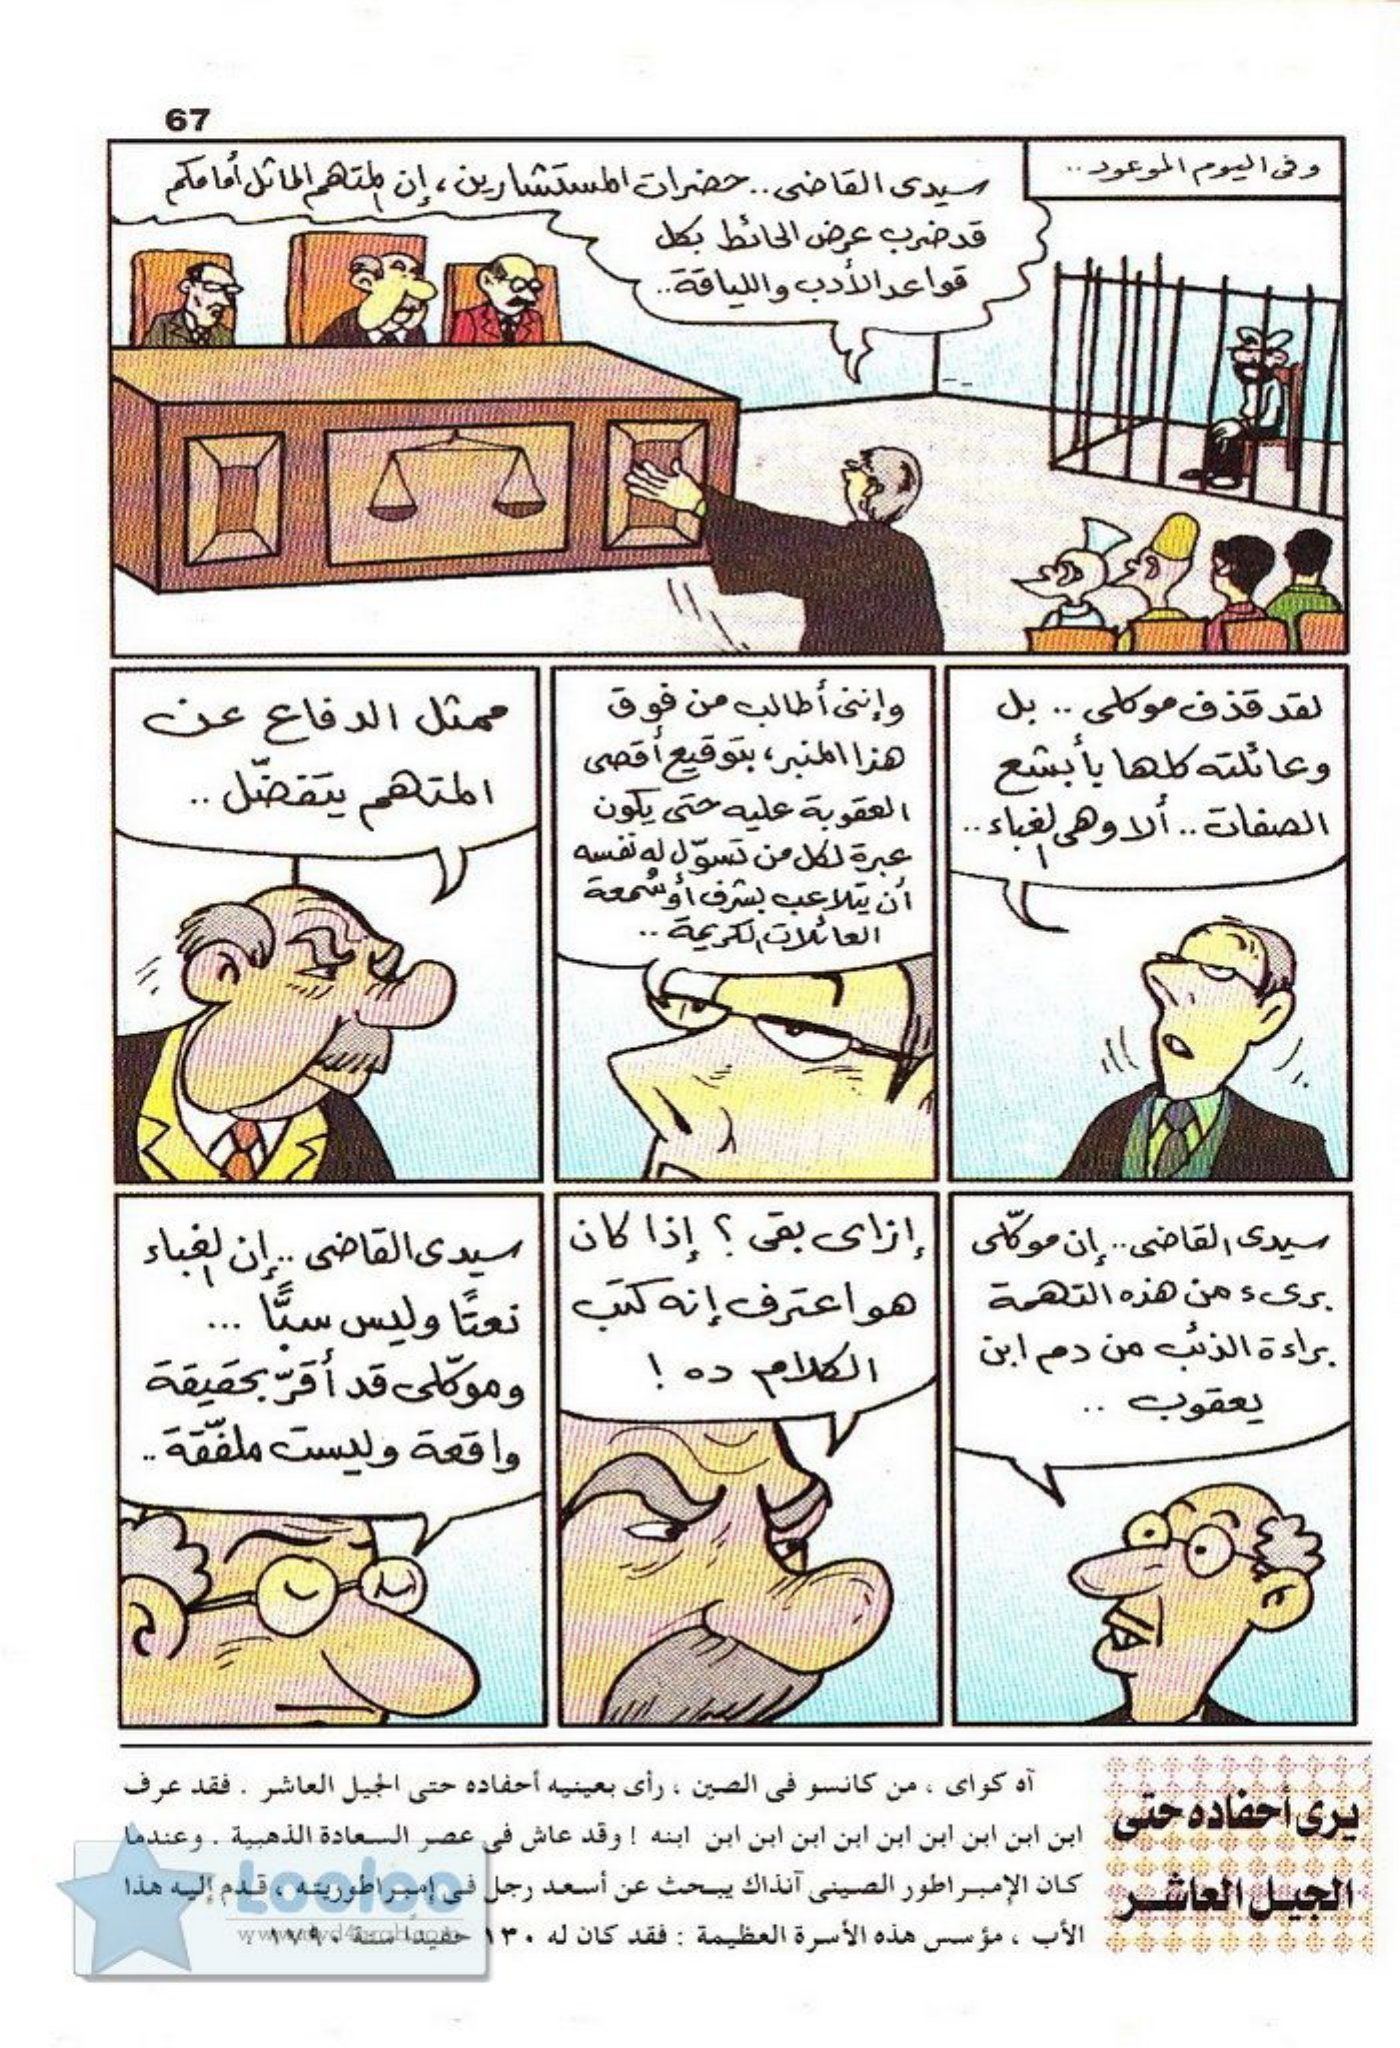 67
وفى اليوم الموعود..
سيدى القاضى.. حضرات المستشارين، إن المتهم الماثل أمامكم
قد ضرب عرض الحائط بكل
قواعد الأدب واللياقة..
لقد قذف موكلى .. بل
وعائلته كلها بأبشع
الصفات.. ألا وهى الغباء..
وإننى أطالب من فوق
هذا المنبر، بتوقيع أقصى
العقوبة عليه حتى يكون
عبرة لكل من تسوّل له نفسه
أن يتلاعب بشرف أو سُمعة
العائلات الكريمة ..
ممثل الدفاع عن
المتهم يتفضّل ..
سيدى القاضى.. إن موكّلى
برىء من هذه التهمة
براءة الذئب من دم ابن
يعقوب ..
إزاى بقى ؟ إذا كان
هو اعترف إنه كتب
الكلام ده !
سيدى القاضى .. إن الغباء
نعتًا وليس سبًّا ...
وموكّلى قد أقرّ بحقيقة
واقعة وليست ملفّقة ..
يرى أحفاده حتى
الجيل العاشر
آه كواى ، من كانسو فى الصين ، رأى بعينيه أحفاده حتى الجيل العاشر . فقد عرف
ابن ابن ابن ابن ابن ابن ابن ابن ابن ابنه ! وقد عاش فى عصر السعادة الذهبية . وعندما
كان الإمبراطور الصينى آنذاك يبحث عن أسعد رجل فى إمبراطوريته ، قدم إليه هذا
الأب ، مؤسس هذه الأسرة العظيمة : فقد كان له ١٣٠ حفيدًا سنة ١٧٩٠ .
Looloo